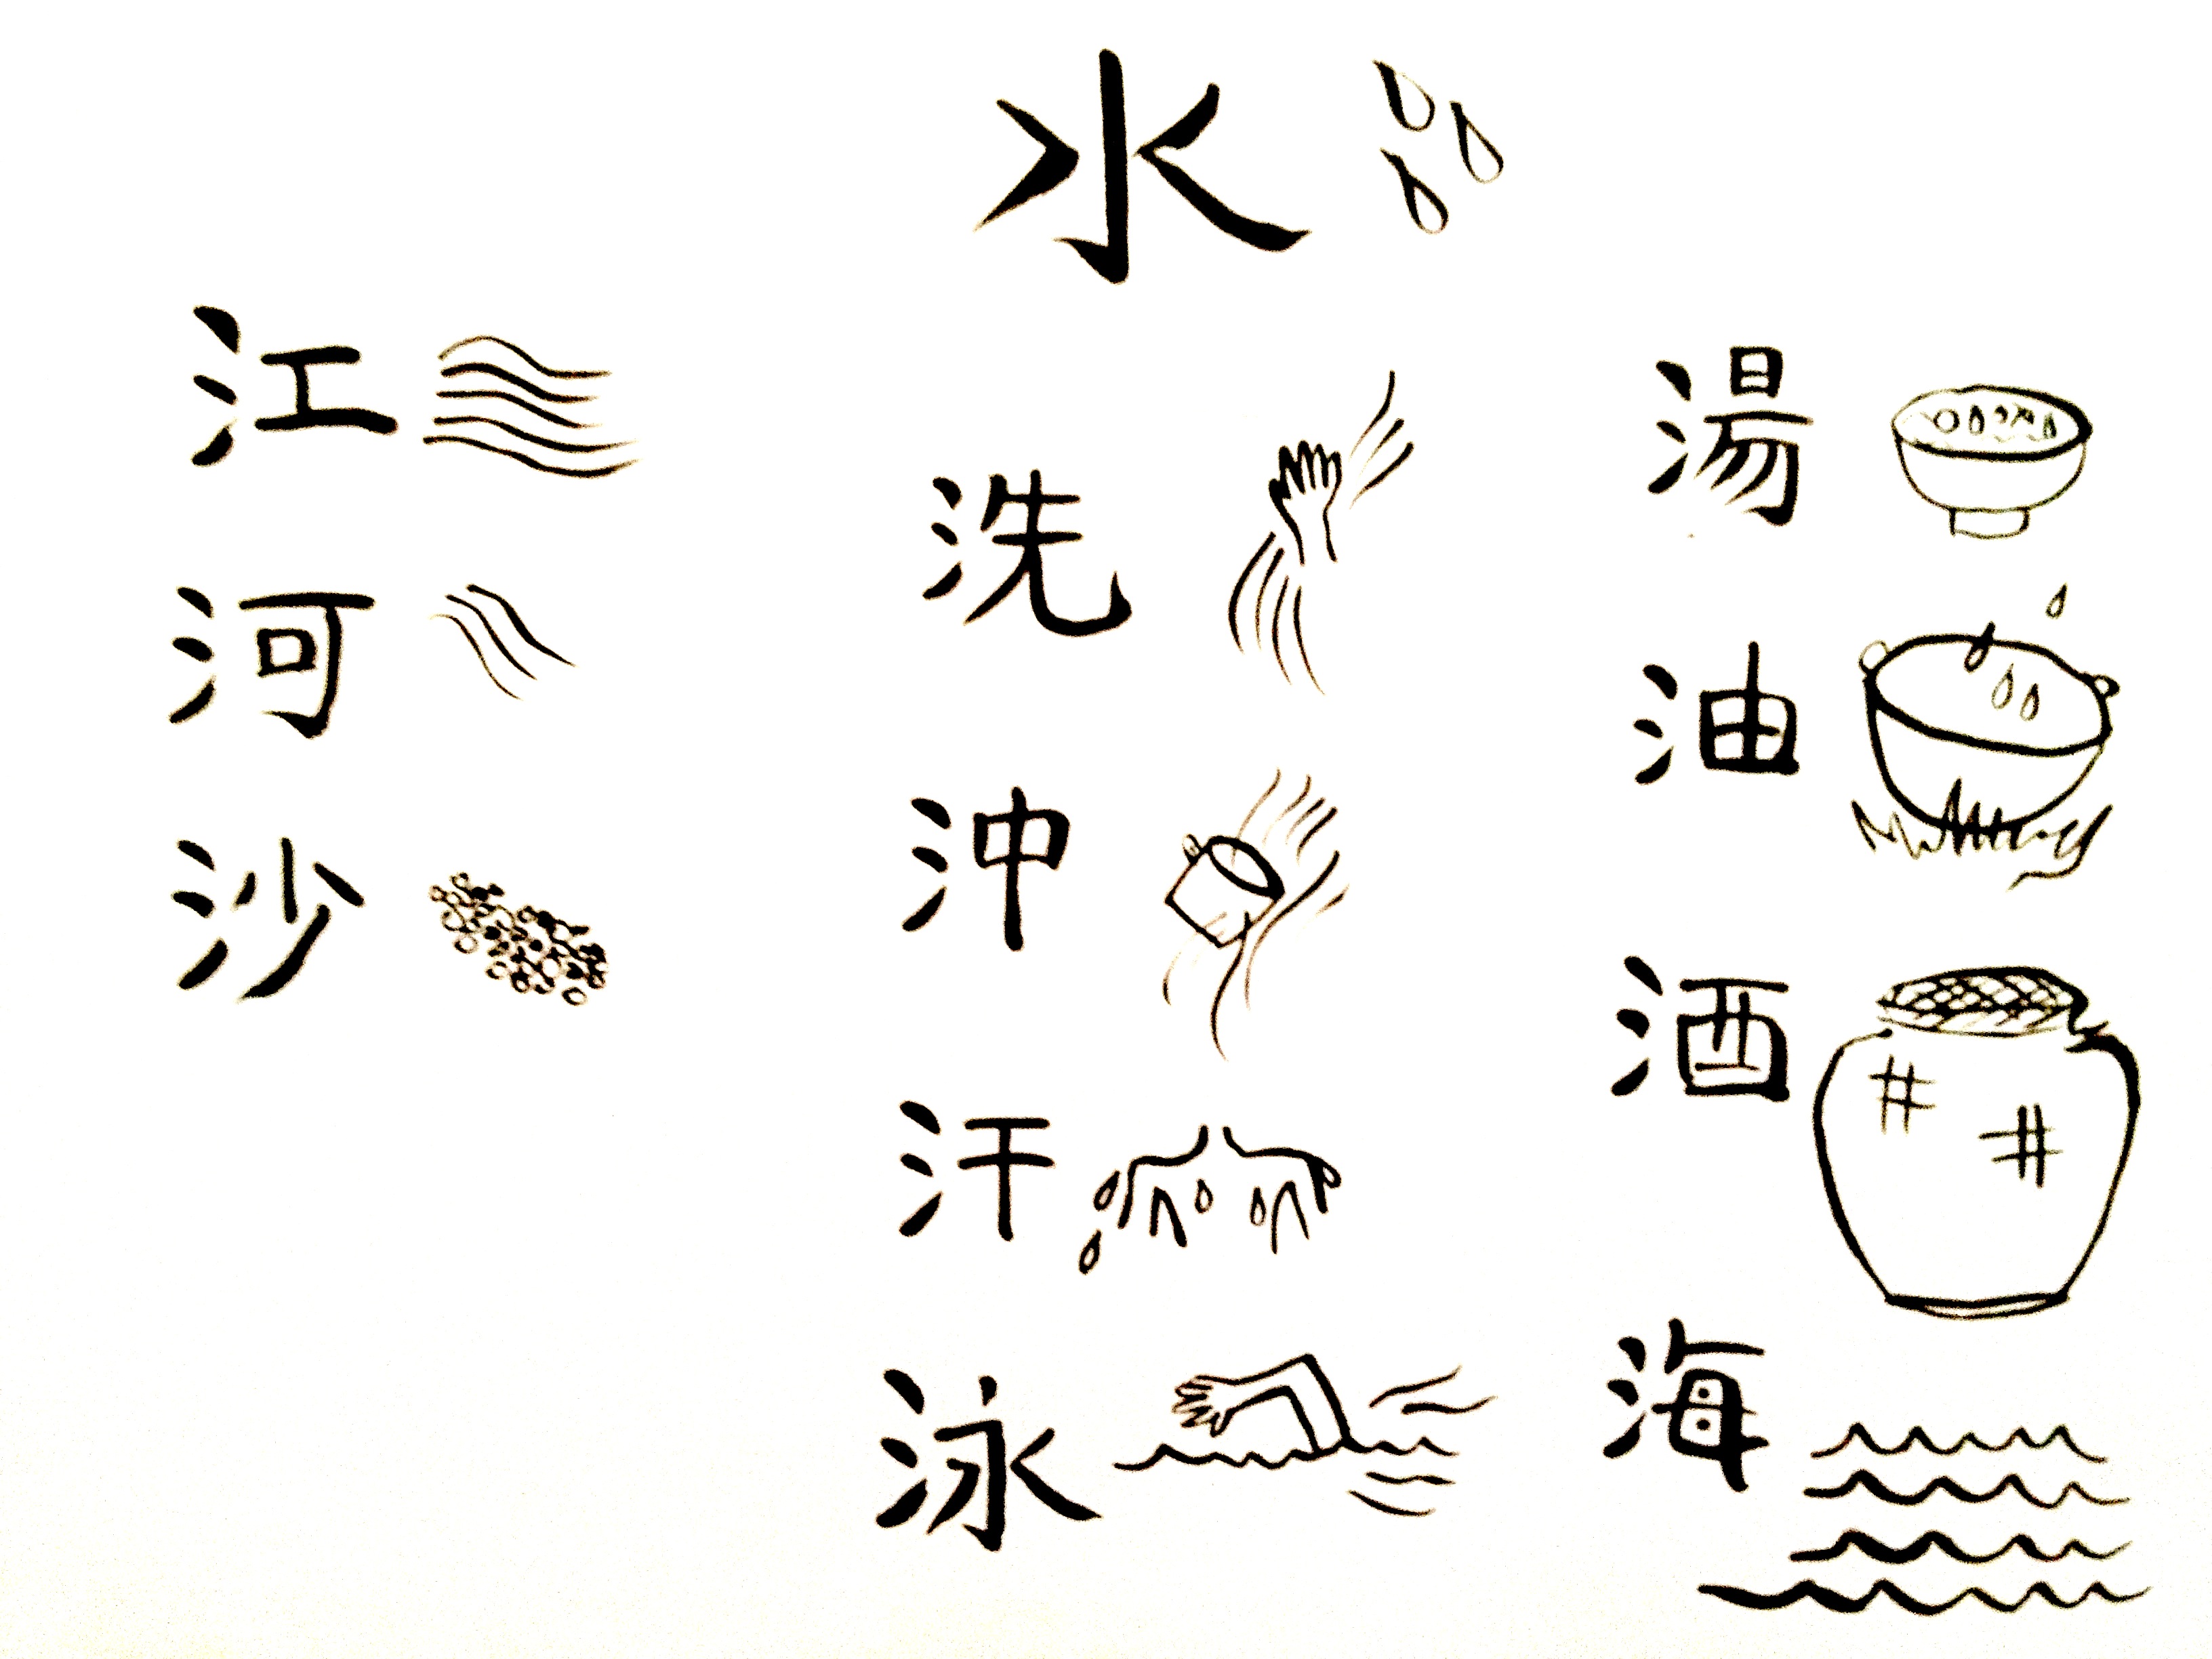 水
江
河
沙
洗
沖
汗
泳
湯
油
酒
海